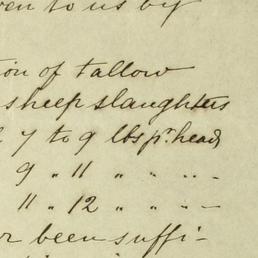 to us by
tion of tallow
sheep slaughters
7 to 9 lbs pr. head
9 " 11 " " " -
11 " 12 " " " -
been suffi-